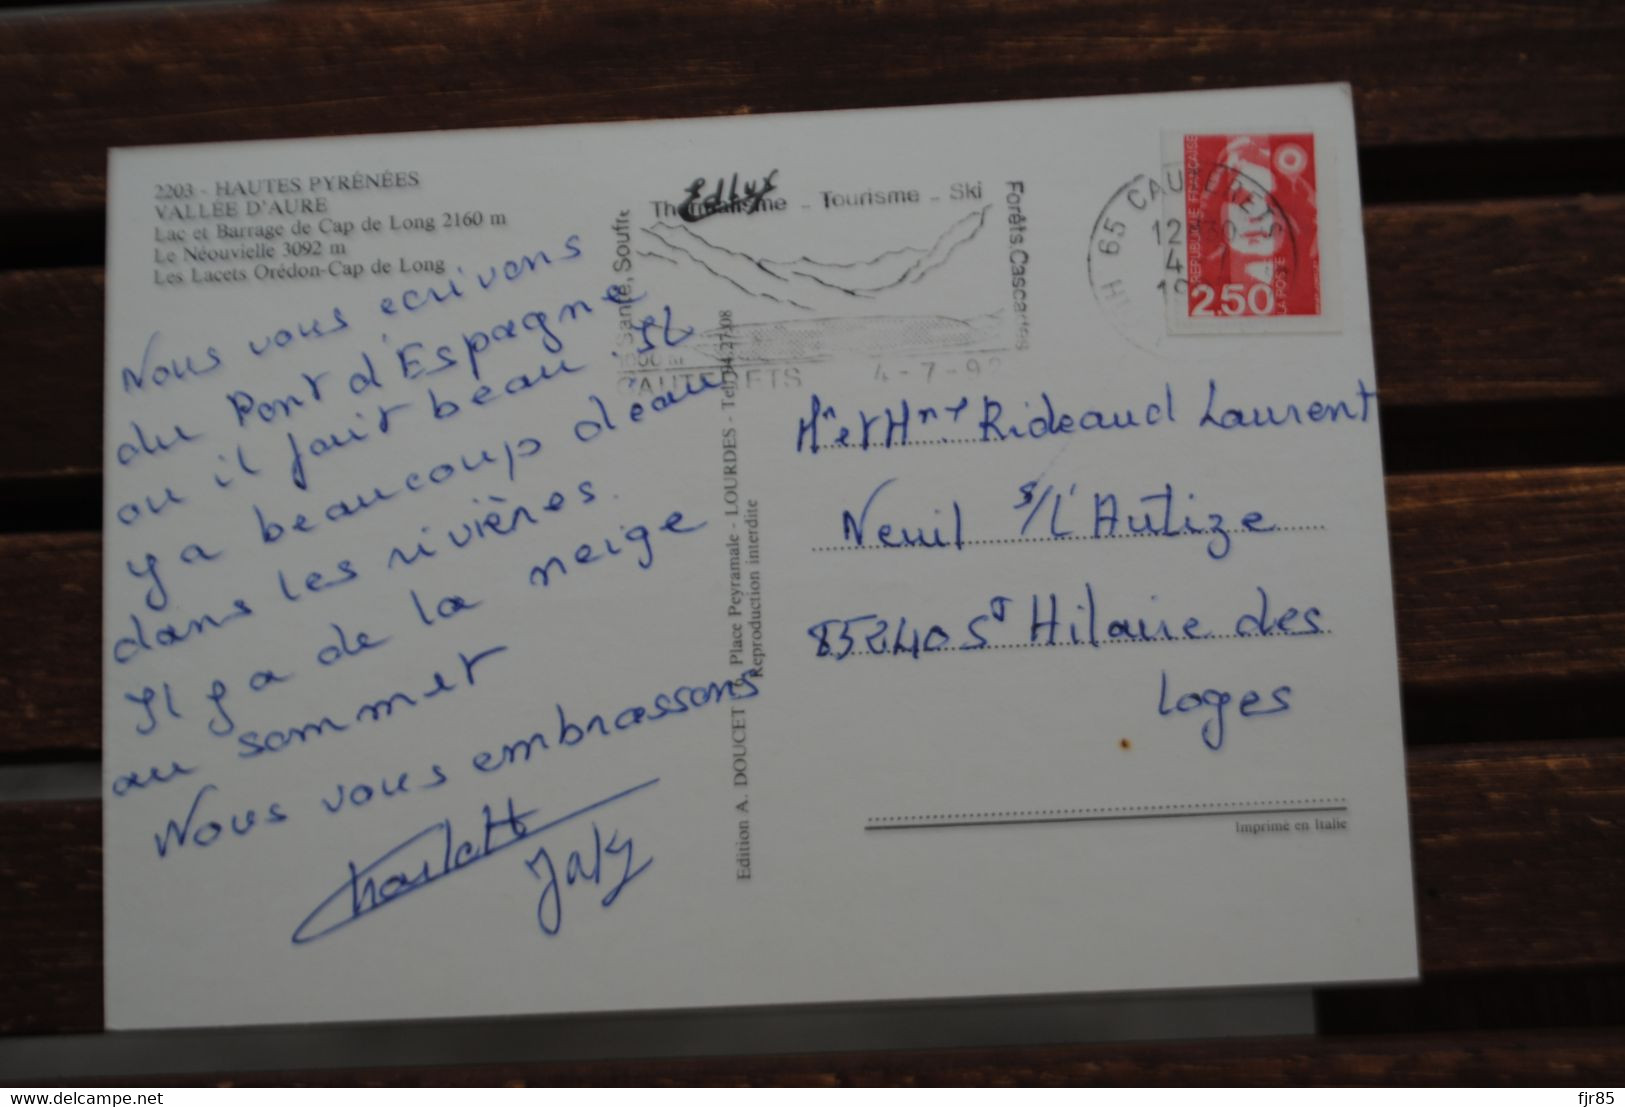 2203 - HAUTES PYRÉNÉES
VALLÉE D'AURE
Lac et Barrage de Cap de Long 2160 m
Le Néouvielle 3092 m
Les Lacets Orédon-Cap de Long
Nous vous ecrivons
du Pont d'Espagne
ou il fait beau. Il
y a beaucoup d'eau
dans les rivières.
Il y a de la neige
au sommet
Nous vous embrassons
Jaky
Eddy
Thermalisme - Tourisme - Ski
Santé, Souffle
Forêts, Cascades
1000 m
CAUTERETS 4-7-92
Edition A. DOUCET Place Peyramale - LOURDES - Tel. 94.27.08
Reproduction interdite
65 CAUTERETS
12 30
4
19
REPUBLIQUE FRANÇAISE
2,50
LA POSTE
Mr et Mme Rideaud Laurent
Neuil s/l'Autize
85240 St Hilaire des
Loges
Imprimé en Italie
fjr85
www.delcampe.net